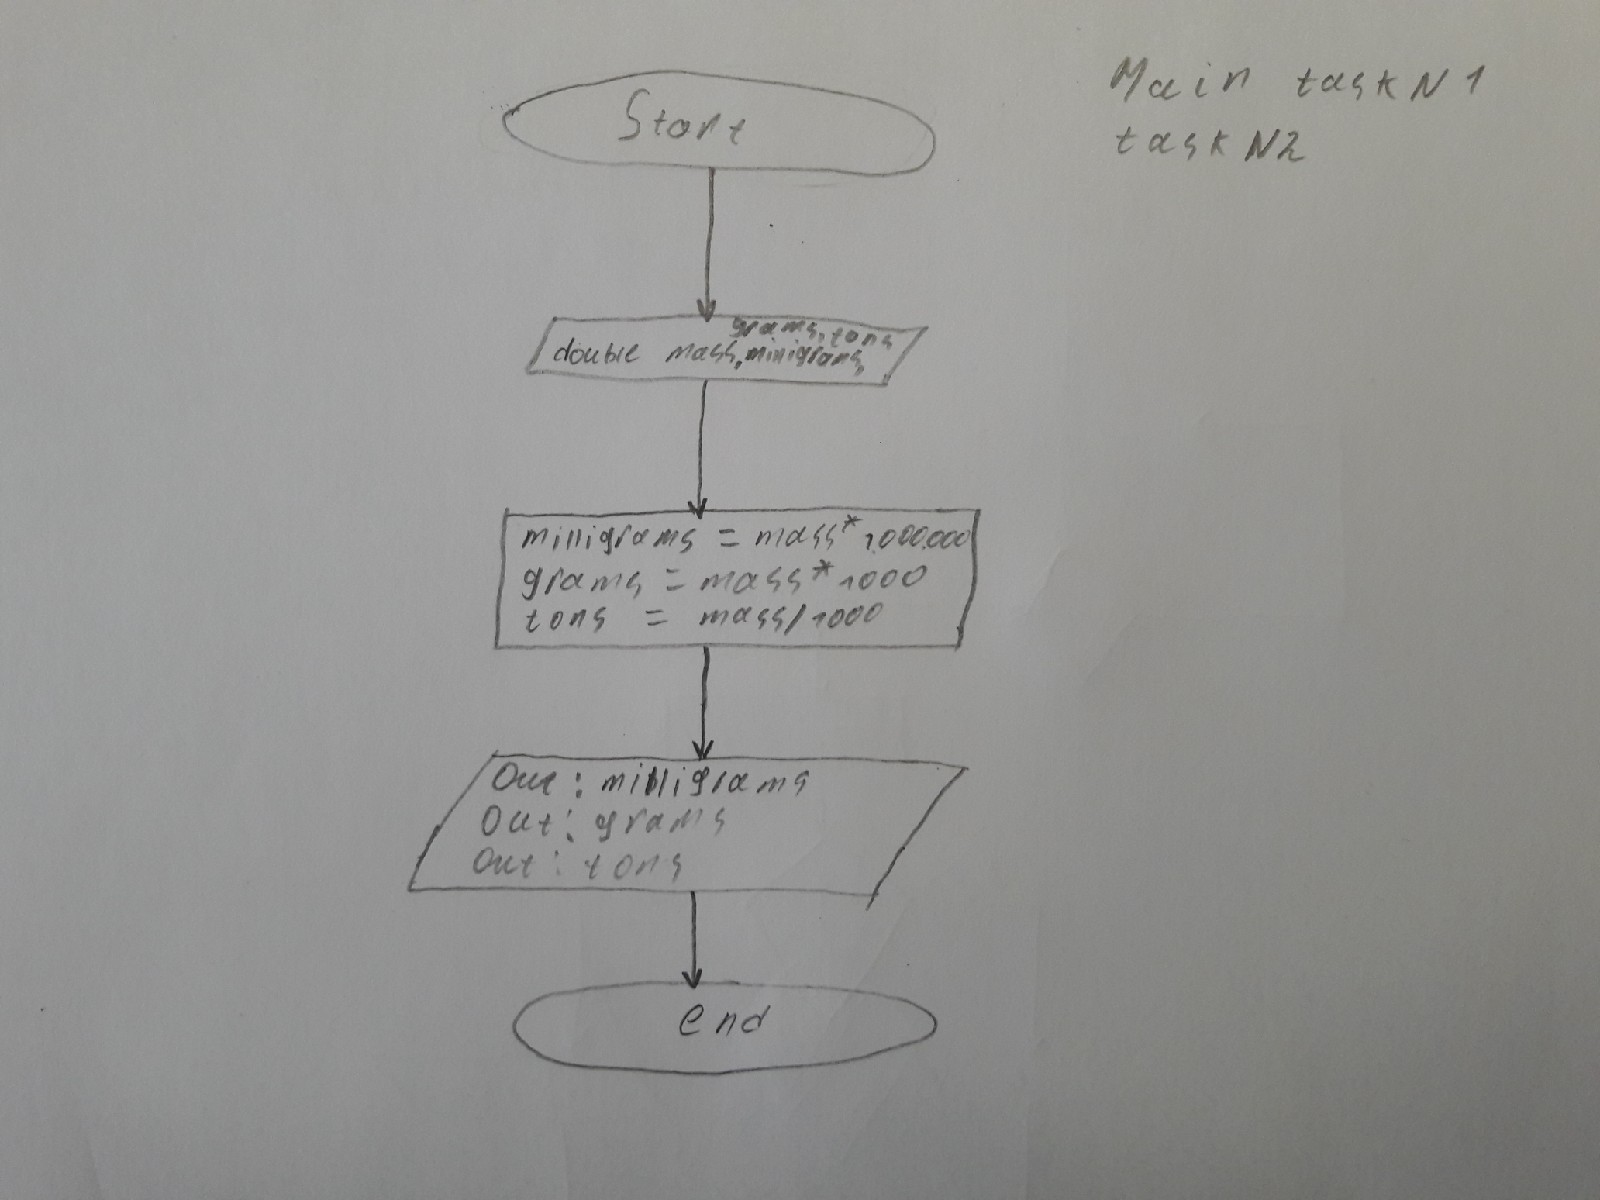 Main task N 1
task N2
Start
grams, tons
double mass, milligrams,
milligrams = mass * 1.000.000
grams = mass * 1000
tons = mass / 1000
Out : milligrams
Out : grams
Out : tons
end